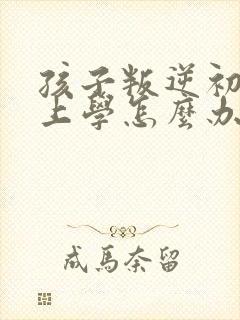 孩子叛逆初
上學怎麼办
成馬奈留